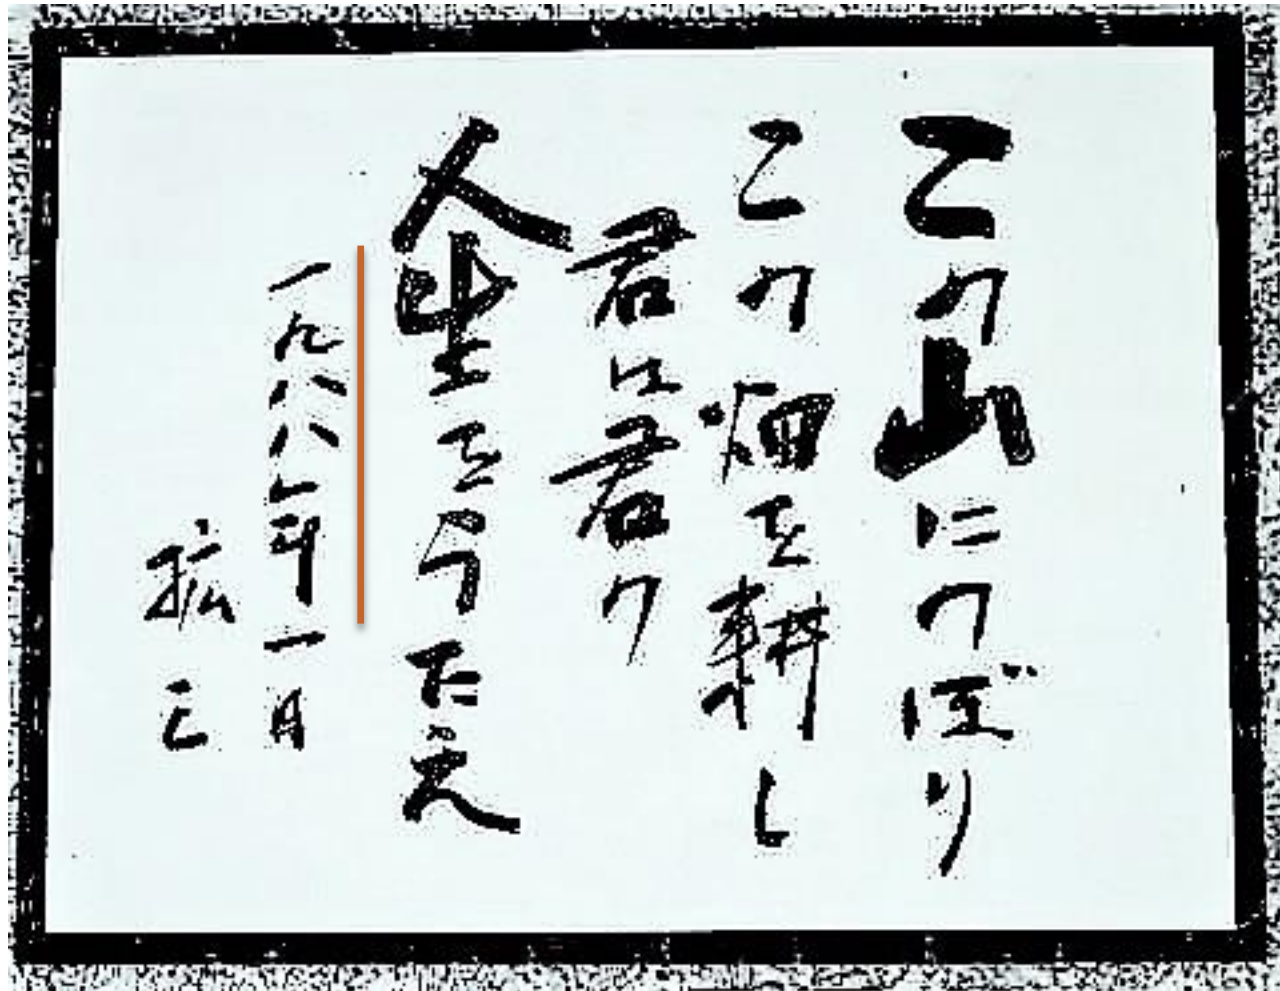 この山にのぼり
この畑を耕し
君は君の
人生をうたえ
一九八八年一月
拡三